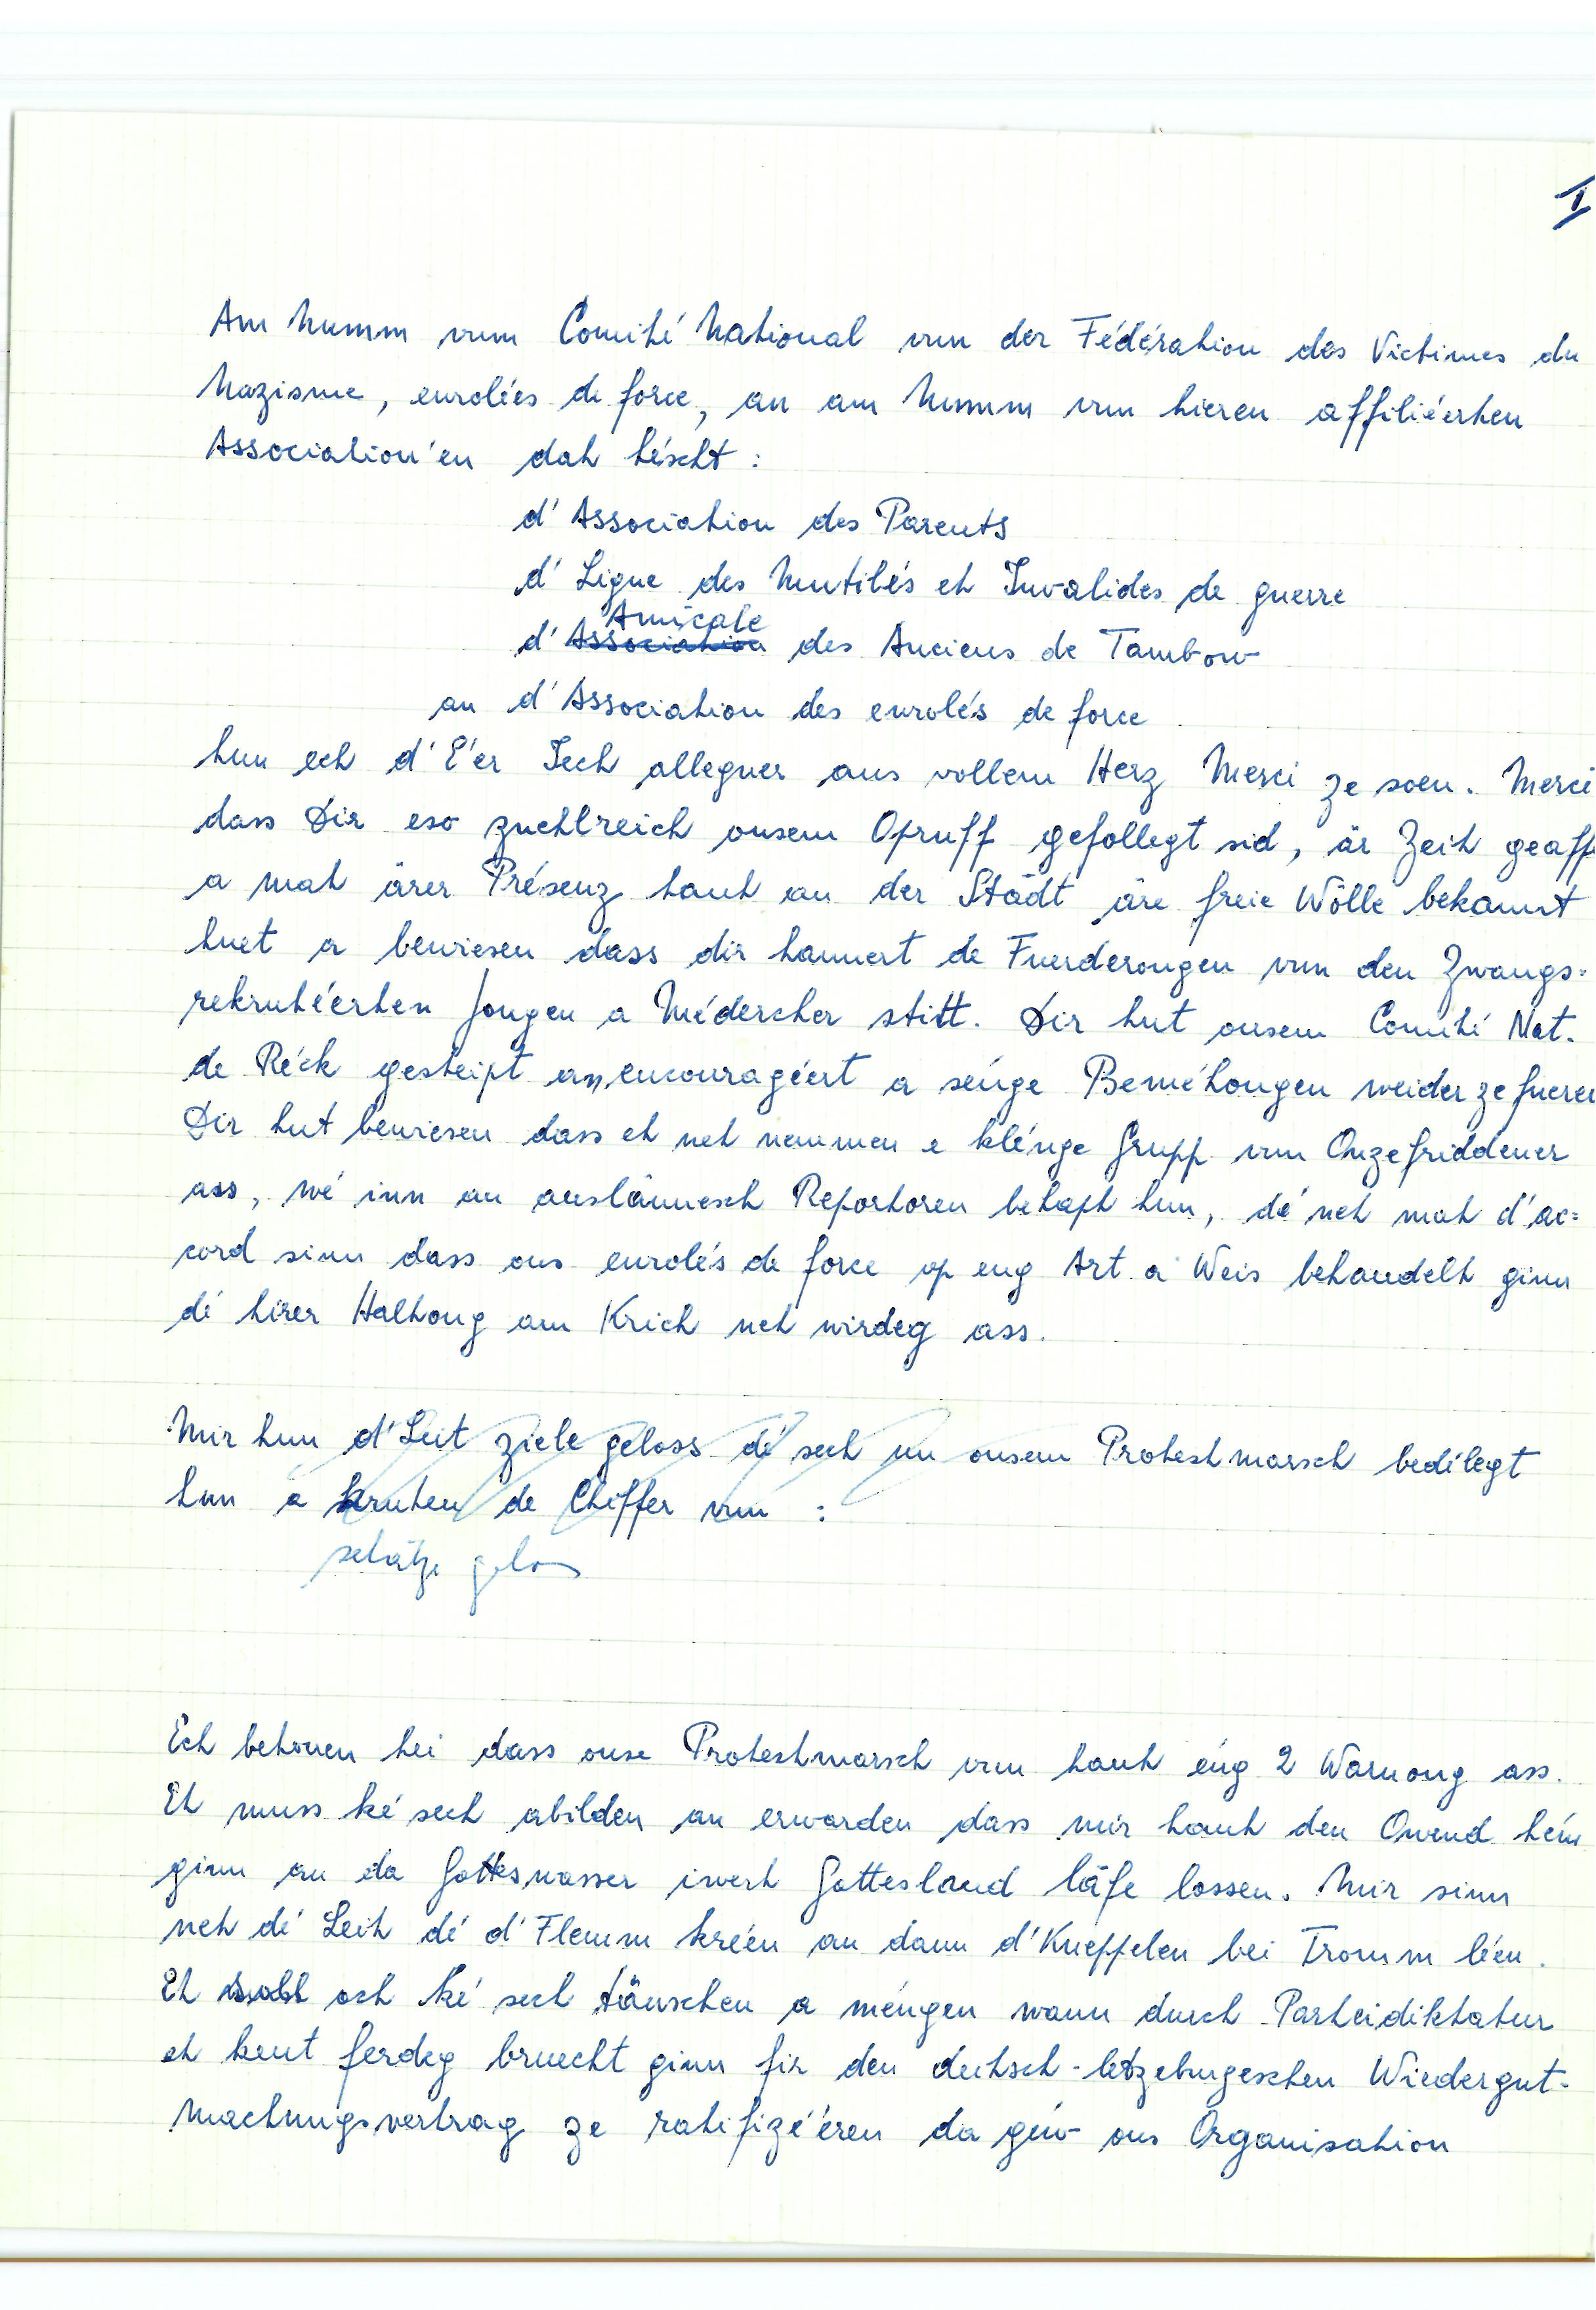 I
Am Numm vum Comité National vun der Fédération des Victimes du
Nazisme, enrolées de force, an am Numm vun hieren affiliéerten
Association'en dat héscht :
d'Association des Parents
d'Ligue des Mutilés et Invalides de guerre
Amicale
d'Association des Anciens de Tambow
an d'Association des enrolés de force
hun ech d'E'er Iech alleguer aus vollem Herz Merci ze soen. Merci
dass Dir eso zuehlreich onsem Opruff gefollegt sid, är Zeit geaff
a mat ärer Présenz haut an der Städt äre freie Wölle bekannt
huet a bewiesen dass dir hannert de Fuerderongen vun den Zwangs=
rekrutéerten Jongen a Médercher stitt. Dir hut onsem Comité Nat.
de Réck gesteipt an encouragéert a séinge Beméhongen weider ze fueren
Dir hut bewiesen dass et net nemmen e klénge Grupp vun Onzefriddener
ass, wé inn an auslännesch Reportoren behapt hun, dé net mat d'ac=
cord sinn dass ons enrolés de force op eng Art a Weis behandelt ginn
dé hirer Haltong am Krich net wirdeg ass.
Mir hun d'Leit ziele geloss dé sech un onsem Protestmarsch bedélegt
hun a kruten de Chiffer vun :
schätze geloss
Ech betonen hei dass onse Protestmarsch vun haut éng 2 Warnong ass.
Et muss ké sech abilden an erwarden dass mir haut den Owend hém
ginn an da Gotteswasser iwert Gottesland läfe lossen. Mir sinn
net dé Leit dé d'Flemm kréen an dann d'Kneppelen bei Tromm léen.
Et sohl och ké sech täuschen a méngen wann durch Parteidiktatur
et keut ferdeg bruecht ginn fir den deitsch-letzeburgeschen Wiedergut-
machungsvertrag ze ratifizéeren da géw ons Organisation